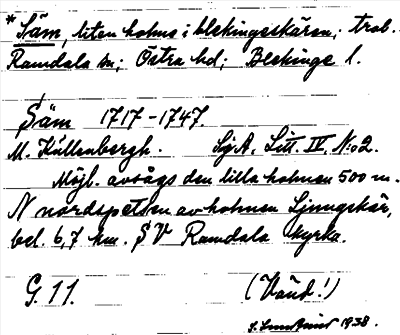 *Säm, liten holme i blekingeskären, trol.
Ramdala sn; Östra hd; Blekinge l.
Säm 1717-1747.
M. Källenbergh. Sj.A. Litt. IV. No 2.
Möjl. avsågs den lilla holmen 500 m.
N nordspetsen av holmen Ljungskär,
bel. 6,7 km. SV Ramdala kyrka.
G. 11. (Vänd!)
1938.